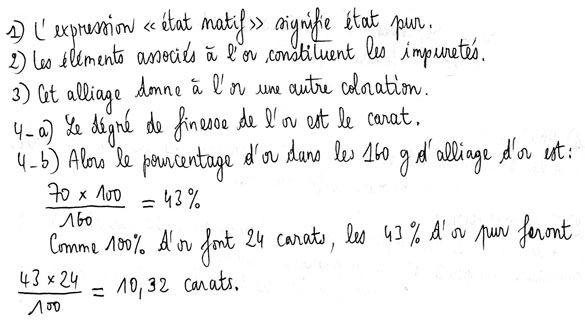 1) L'expression << état natif >> signifie état pur.
2) Les éléments associés à l'or constituent les impuretés.
3) Cet alliage donne à l'or une autre coloration.
4-a) Le dégré de finesse de l'or est le carat.
4-b) Alors le pourcentage d'or dans les 160 g d'alliage d'or est:
70 x 100 / 160 = 43%
Comme 100% d'or font 24 carats, les 43% d'or pur feront
43 x 24 / 100 = 10,32 carats.